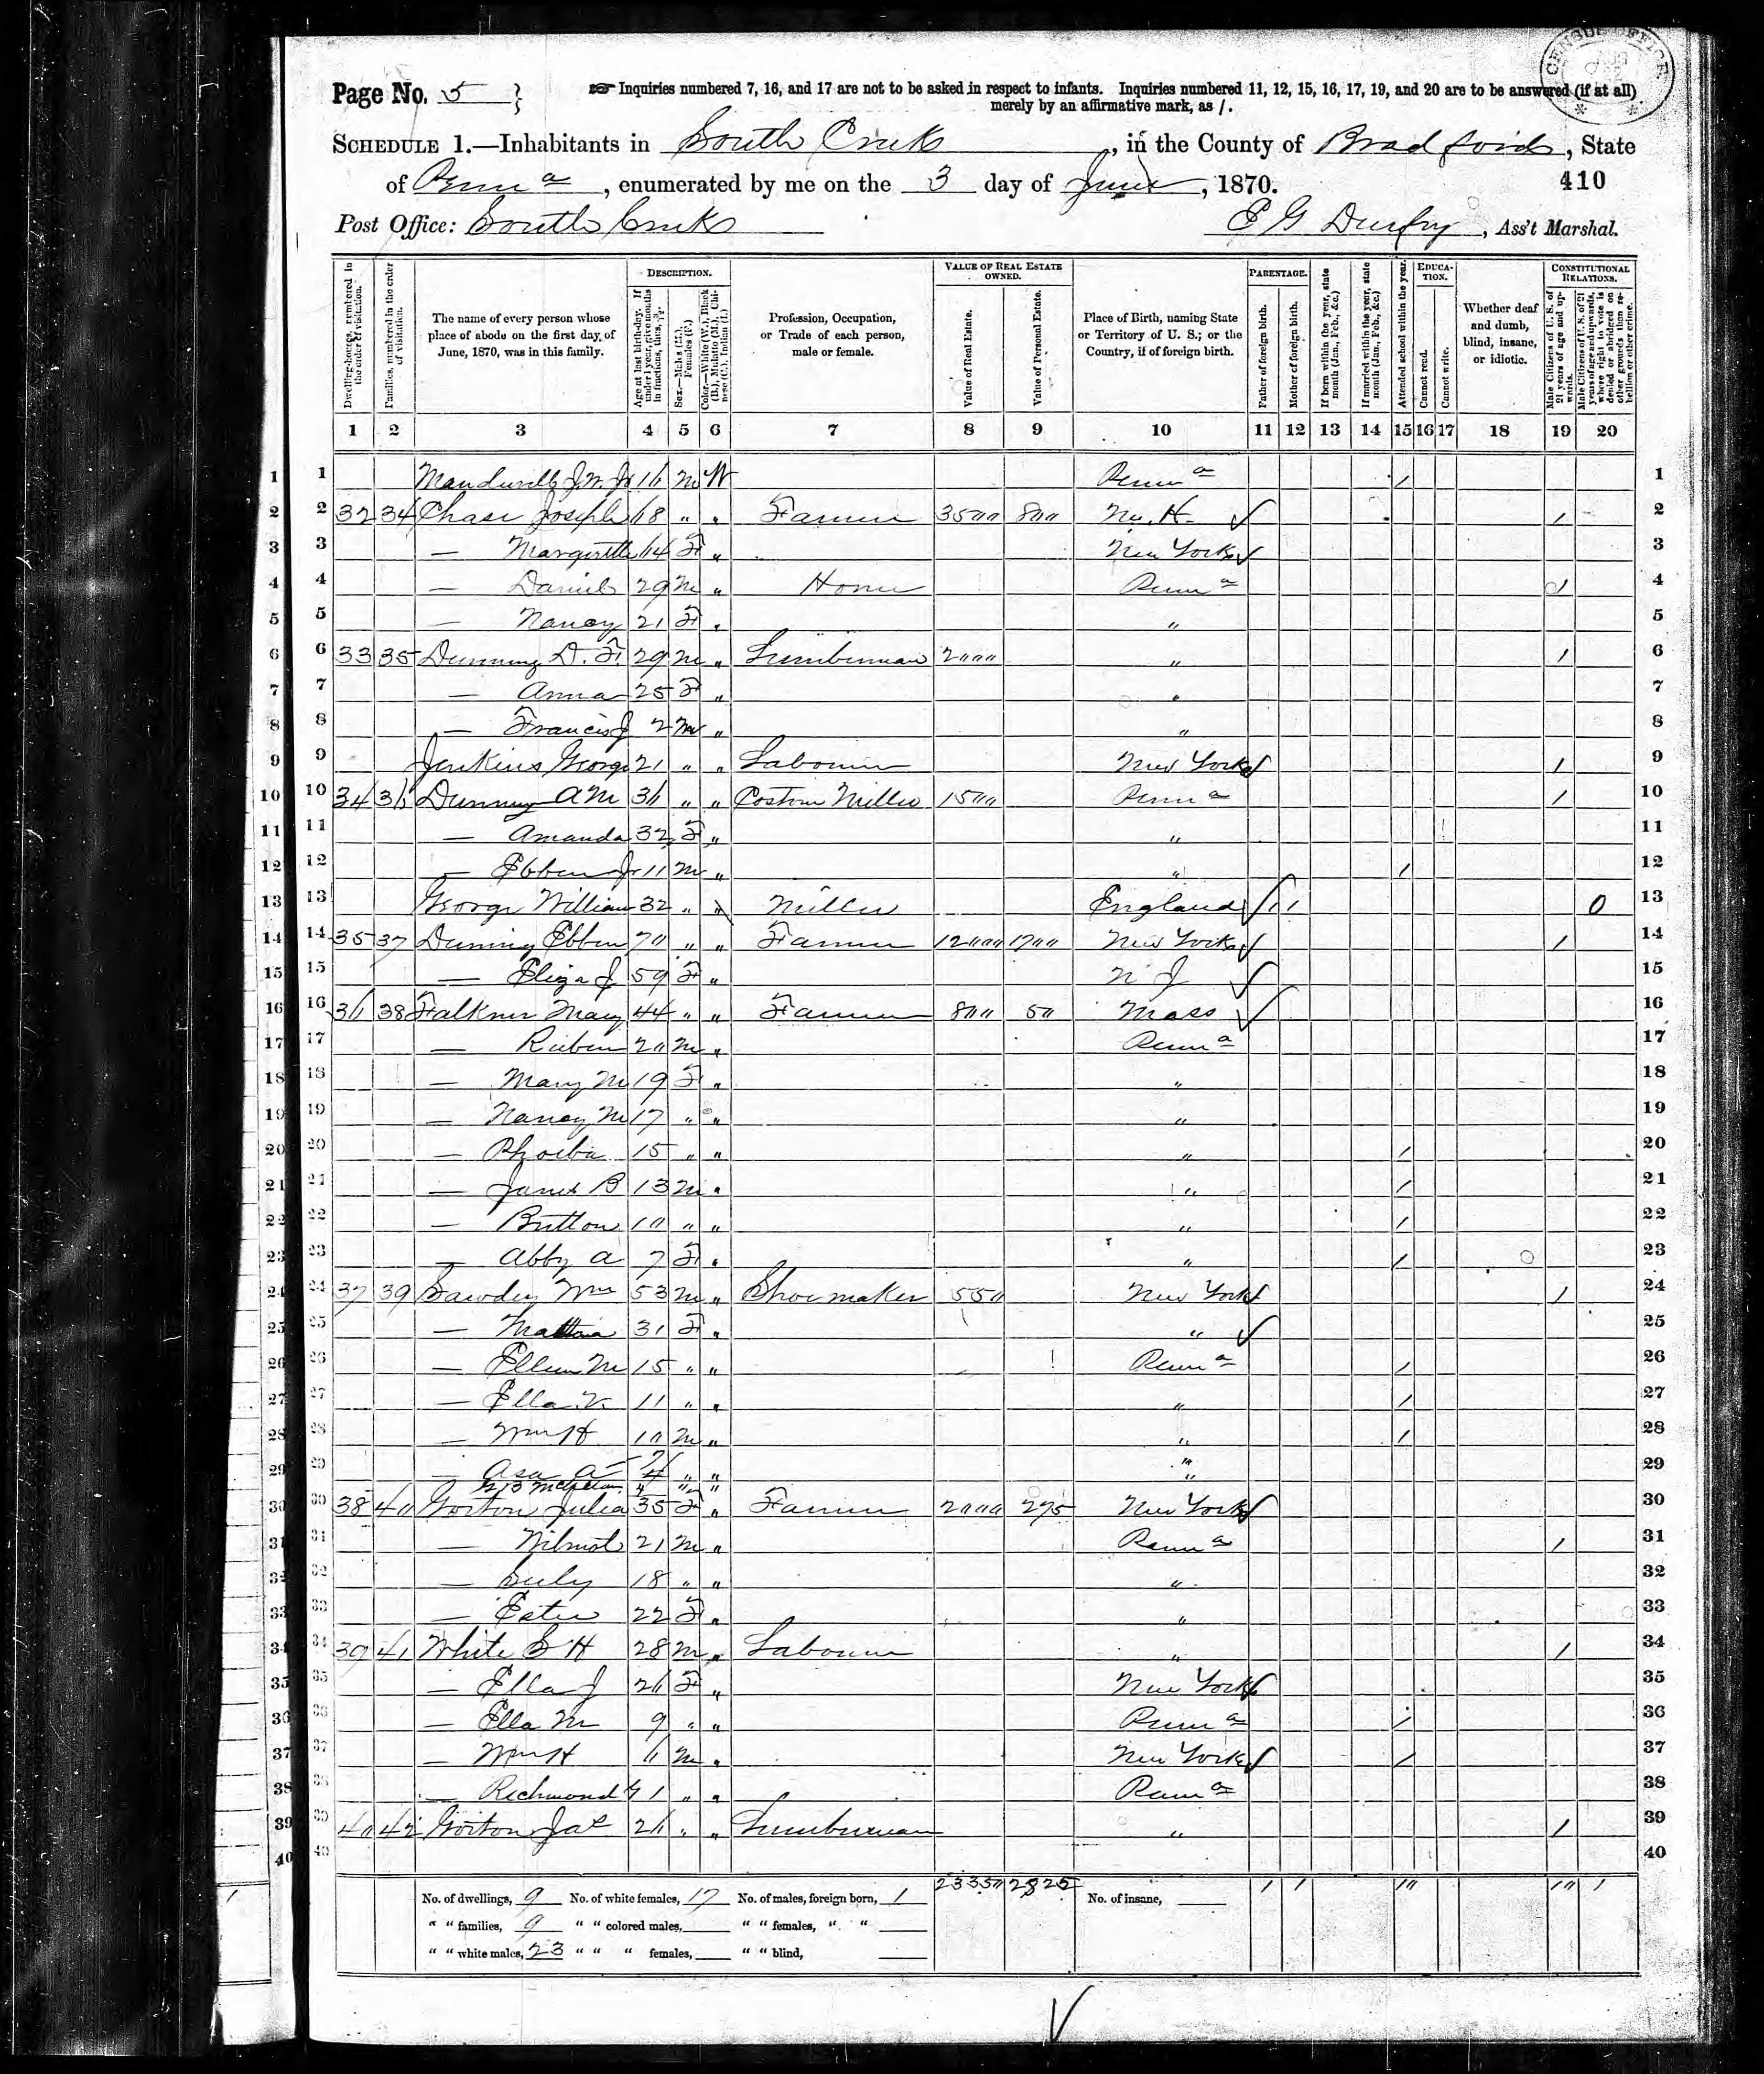 CENSUS OFFICE
Page No. 5
☞ Inquiries numbered 7, 16, and 17 are not to be asked in respect to infants. Inquiries numbered 11, 12, 15, 16, 17, 19, and 20 are to be answered (if at all)
merely by an affirmative mark, as /.
SCHEDULE 1.—Inhabitants in South Creek, in the County of Bradford, State
of Penna, enumerated by me on the 3 day of June, 1870.
410
Post Office: South Creek
E G Durfey, Ass't Marshal.
Dwelling-houses, numbered in the order of visitation.
Families, numbered in the order of visitation.
The name of every person whose place of abode on the first day of June, 1870, was in this family.
DESCRIPTION.
Age at last birth-day. If under 1 year, give months in fractions, thus, 3/12.
Sex.—Males (M.), Females (F.)
Color.—White (W.), Black (B.), Mulatto (M.), Chinese (C.), Indian (I.)
Profession, Occupation, or Trade of each person, male or female.
VALUE OF REAL ESTATE OWNED.
Value of Real Estate.
Value of Personal Estate.
Place of Birth, naming State or Territory of U. S.; or the Country, if of foreign birth.
PARENTAGE.
Father of foreign birth.
Mother of foreign birth.
If born within the year, state month (Jan., Feb., &c.)
If married within the year, state month (Jan., Feb., &c.)
Attended school within the year.
EDUCATION.
Cannot read.
Cannot write.
Whether deaf and dumb, blind, insane, or idiotic.
CONSTITUTIONAL RELATIONS.
Male Citizens of U. S. of 21 years of age and upwards.
Male Citizens of U. S. of 21 years of age and upwards, where right to vote is denied or abridged on other grounds than rebellion or other crime.
1 2 3 4 5 6 7 8 9 10 11 12 13 14 15 16 17 18 19 20
1 J. M. Jr 16 M W Penna / 1
2 32 34 Chase Joseph 68 " " Farmer 3500 800 Ne. H. / 2
3 — Margurette 64 F " New York 3
4 — Daniel 29 M " Home Penna / 4
5 — Nancy 21 F " " 5
6 33 35 Dunning D. F. 29 M " Lumberman 2000 " / 6
7 — Anna 25 F " " 7
8 — Francis J 2 M " " 8
9 Jenkins George 21 " " Labourer New York / 9
10 34 36 Dunning A M 36 " " Costom Miller 1500 Penna / 10
11 — Amanda 32 F " " 11
12 — Ebben Jr 11 M " " / 12
13 George William 32 " " Miller England / / 0 13
14 35 37 Dunning Ebben 70 " " Farmer 12000 1700 New York / 14
15 — Eliza J 59 F " N J 15
16 36 38 Falkner Mary 44 " " Farmer 800 50 Mass 16
17 — Rieben 20 M " Penna 17
18 — Mary M 19 F " " 18
19 — Nancy M 17 " " " 19
20 — Phoeba 15 " " " / 20
21 — James B 13 M " " / 21
22 — Button 10 " " " / 22
23 — Abby A 7 F " " / 23
24 37 39 Sawdey Wm 53 M " Shoemaker 550 New York / 24
25 — 31 F " " 25
26 — Ellen M 15 " " Penna / 26
27 — Ella V. 11 " " " / 27
28 — Wm H 10 M " " / 28
29 — Asa A " " " 29
G B McClellan 4 " " "
30 38 40 Gorton Julia 35 F " Farmer 2000 275 New York 30
31 — Wilmot 21 M " Penna / 31
32 — 18 " " " 32
33 — Ester 22 F " " 33
34 39 41 White G H 28 M " Labourer " / 34
35 — Ella J 26 F " New York 35
36 — Ella M 9 " " Penna / 36
37 — Wm H 6 M " New York / 37
38 — Richmond G 1 " " Penna 38
39 40 42 Gorton Jas 26 " " Lumberman " / 39
40 40
No. of dwellings, 9 No. of white females, 17 No. of males, foreign born, 1 23350 2825 No. of insane, 1 1 10 10 1
" " families, 9 " " colored males, " " females, " "
" " white males, 23 " " " females, " " blind,